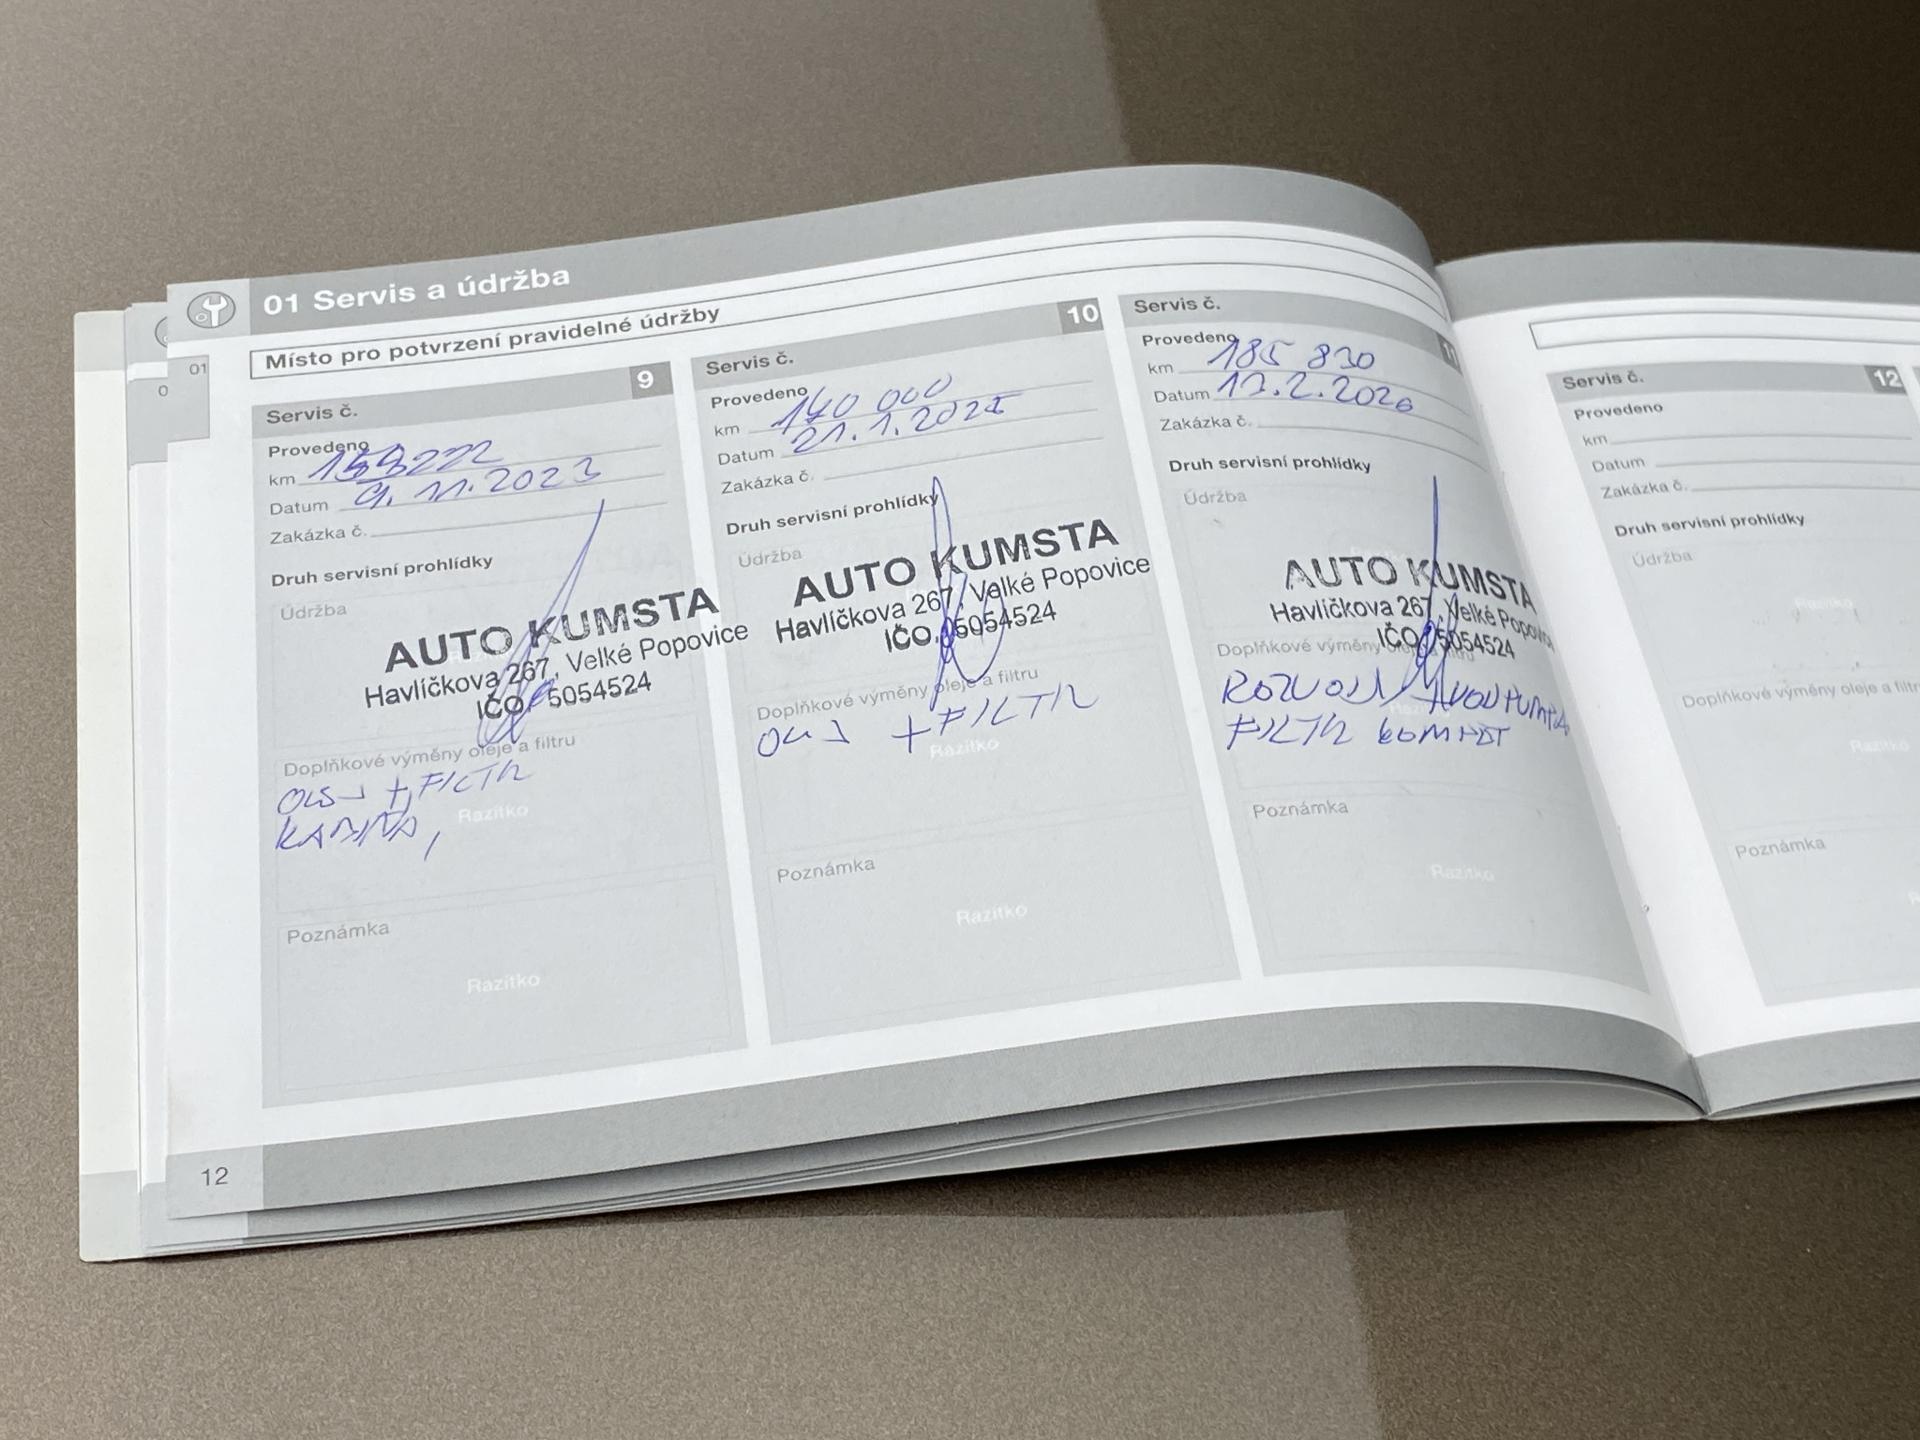 01 Servis a údržba
Místo pro potvrzení pravidelné údržby
01
0
Servis č. 9
Provedeno
km
Datum 9.11.2023
Zakázka č.
Druh servisní prohlídky
Údržba
AUTO KUMSTA
Havlíčkova 267, Velké Popovice
IČO 5054524
Doplňkové výměny oleje a filtru
+ FILTR
Razítko
KABINA,
Poznámka
Razítko
Servis č. 10
Provedeno
km 140 000
Datum 21.1.2025
Zakázka č.
Druh servisní prohlídky
Údržba
AUTO KUMSTA
Havlíčkova 267, Velké Popovice
IČO 05054524
Doplňkové výměny oleje a filtru
OLEJ + FILTR
Razítko
Poznámka
Razítko
Servis č. 11
Provedeno
km 185 830
Datum 17.2.2026
Zakázka č.
Druh servisní prohlídky
Údržba
AUTO KUMSTA
Havlíčkova 267, Velké Popovice
IČO 05054524
Doplňkové výměny oleje a filtru
ROZVODY + VODPUMPA
FILTR KOMPLET
Poznámka
Razítko
Servis č. 12
Provedeno
km
Datum
Zakázka č.
Druh servisní prohlídky
Údržba
Razítko
Doplňkové výměny oleje a filtru
Razítko
Poznámka
12